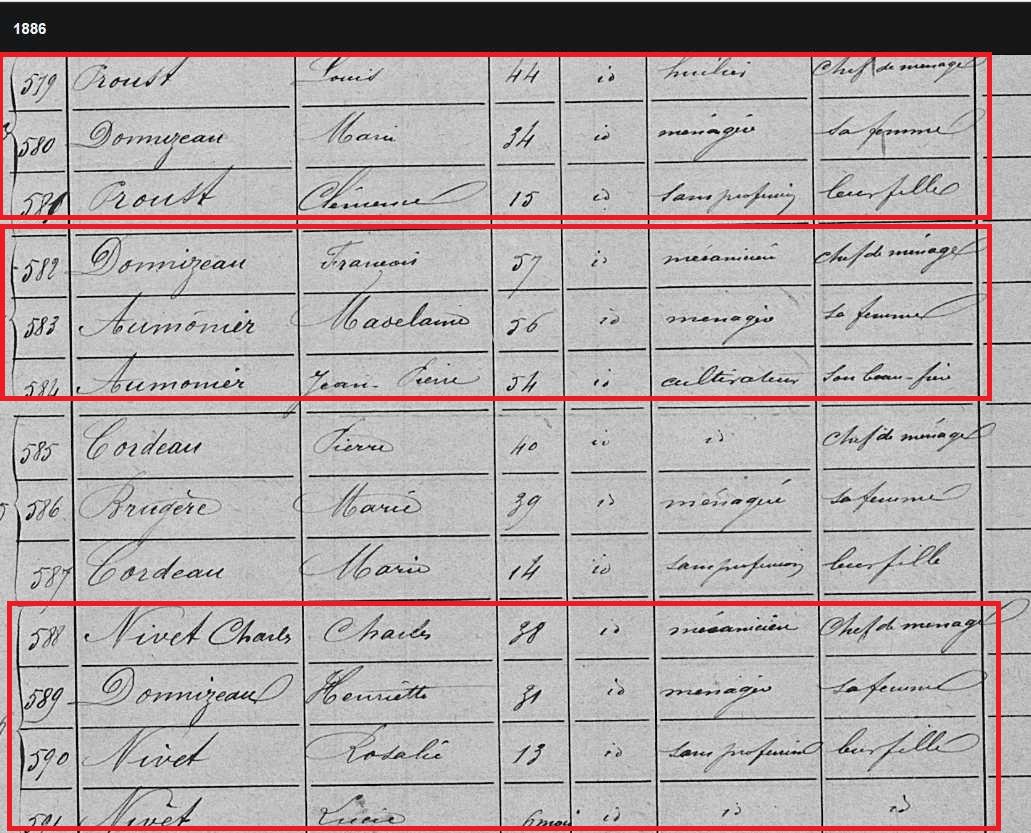 1886
579 Proust Louis 44 id huilier Chef de ménage
580 Donnizeau Marie 34 id ménagère sa femme
581 Proust Clémence 15 id sans profession leur fille
582 Donnizeau François 57 id mécanicien chef de ménage
583 Aumônier Madelaine 56 id ménagère sa femme
584 Aumonier Jean-Pierre 54 id cultivateur son beau-frère
585 Cordeau Pierre 40 id id Chef de ménage
586 Brugère Marie 39 id ménagère sa femme
587 Cordeau Marie 14 id sans profession leur fille
588 Nivet Charles Charles 38 id mécanicien Chef de ménage
589 Donnizeau Henriette 31 id ménagère sa femme
590 Nivet Rosalie 13 id sans profession leur fille
591 Nivet Lucie 6 mois id id id